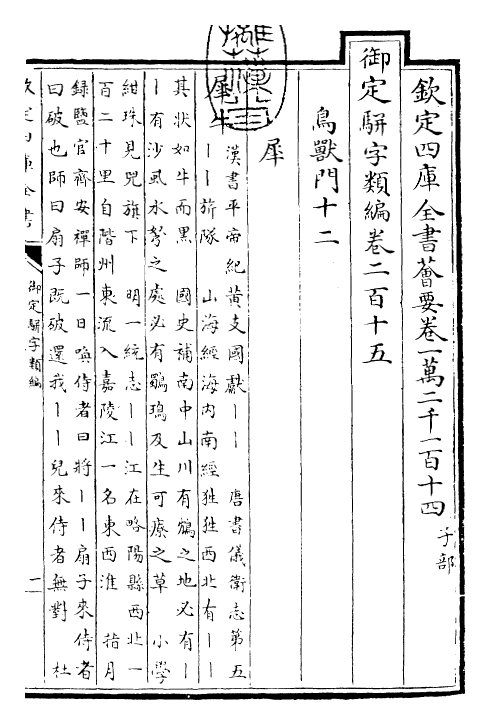 欽定四庫全書薈要卷一萬二千一百十四 子部
御定駢字類編卷二百十五
鳥獸門十二
犀
犀牛 漢書平帝紀黃支國獻丨丨 唐書儀衛志第五
丨丨旂隊 山海經海內南經狌狌西北有丨丨
其狀如牛而黑 國史補南中山川有鴆之地必有丨
丨有沙虱水弩之處必有鸀鳿及生可療之草 小學
紺珠見兕旗下 明一統志丨丨江在略陽縣西北一
百二十里自階州東流入嘉陵江一名東西淮 指月
錄鹽官齊安禪師一日喚侍者曰將丨丨扇子來侍者
曰破也師曰扇子既破還我丨丨兒來侍者無對 杜
欽定四庫全書
御定駢字類編
一